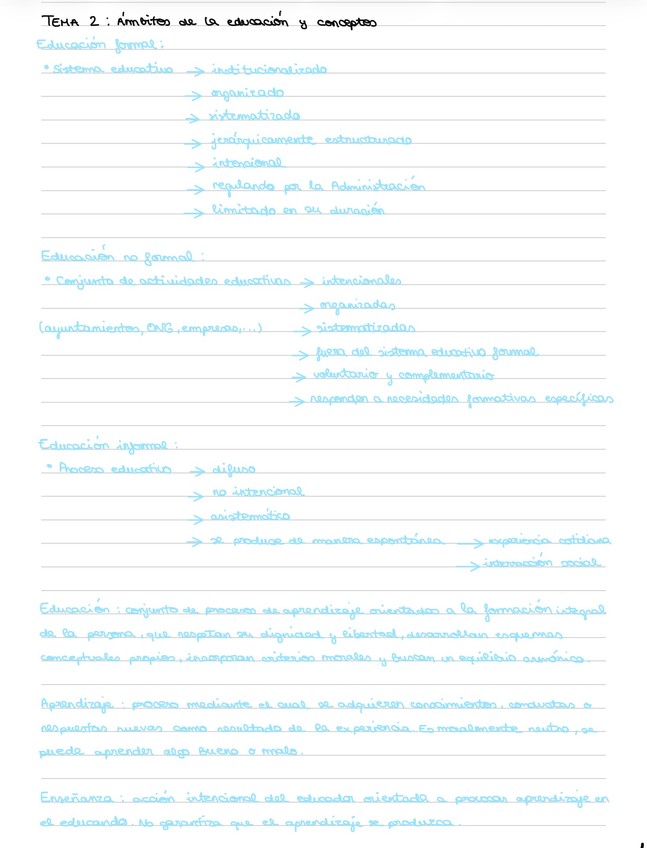 TEMA 2 : Ámbitos de la educación y conceptos
Educación formal :
• Sistema educativo → institucionalizado
→ organizado
→ sistematizado
→ jerárquicamente estructurado
→ intencional
→ regulando por la Administración
→ limitado en su duración
Educación no formal :
• Conjunto de actividades educativas → intencionales
→ organizadas
(ayuntamientos, ONG, empresas,...) → sistematizadas
→ fuera del sistema educativo formal
→ voluntario y complementario
→ responden a necesidades formativas específicas
Educación informal :
• Proceso educativo → difuso
→ no intencional
→ asistemático
→ se produce de manera espontánea → experiencia cotidiana
→ interacción social
Educación : conjunto de procesos de aprendizaje orientados a la formación integral
de la persona, que respetan su dignidad y libertad, desarrollan esquemas
conceptuales propios, incorporan criterios morales y buscan un equilibrio armónico.
Aprendizaje : proceso mediante el cual se adquieren conocimientos, conductas o
respuestas nuevas como resultado de la experiencia Es moralmente neutro, se
puede aprender algo bueno o malo.
Enseñanza : acción intencional del educador orientada a provocar aprendizaje en
el educando. No garantiza que el aprendizaje se produzca.